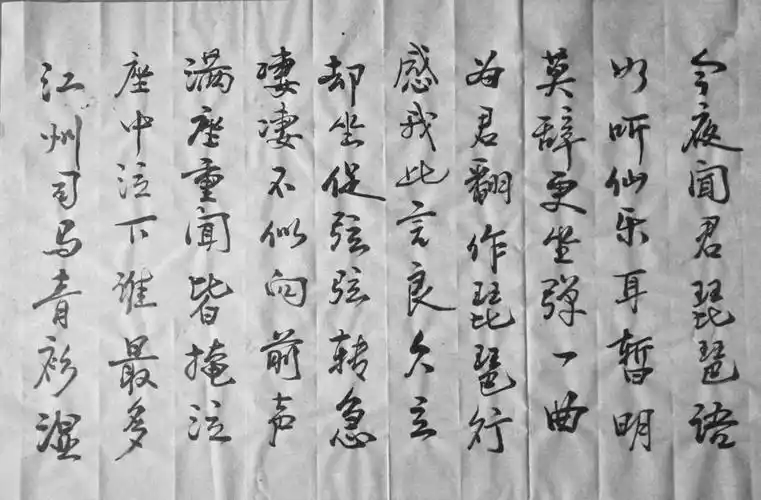 今夜闻君琵琶语
如听仙乐耳暂明
莫辞更坐弹一曲
为君翻作琵琶行
感我此言良久立
却坐促弦弦转急
凄凄不似向前声
满座重闻皆掩泣
座中泣下谁最多
江州司马青衫湿